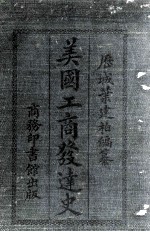 歷城葉建柏編纂
美國工商發達史
商務印書館出版